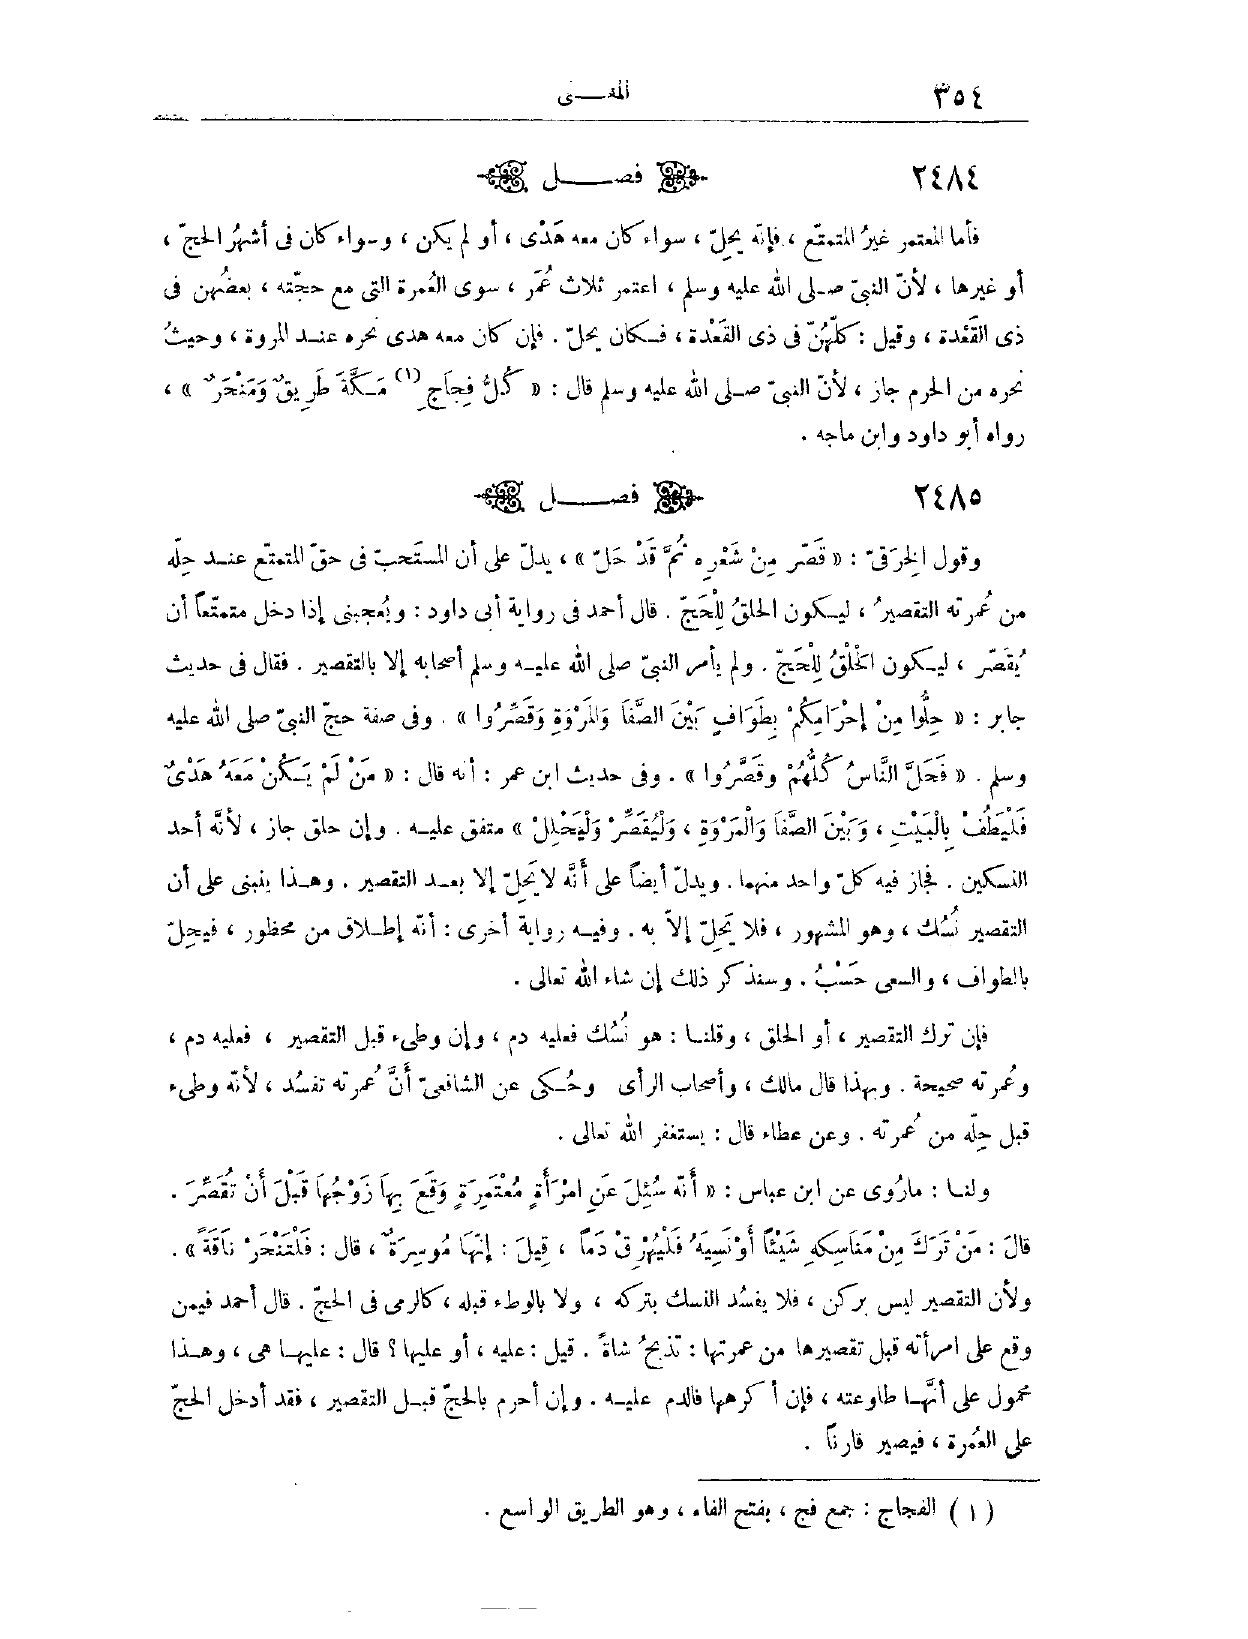 ٣٥٤ المغـــنى
٢٤٨٤ فصـــــل
فأما المعتمر غيرُ المتمتّع ، فإنّه يحلّ ، سواء كان معه هَدْى ، أو لم يكن ، وسواء كان فى أشهُر الحجّ ،
أو غيرها ، لأنّ النبىّ صلى الله عليه وسلم ، اعتمر ثلاث عُمَر ، سوى العُمرة التى مع حجّته ، بعضُهن فى
ذى القَعْدة ، وقيل : كلّهنّ فى ذى القَعْدة ، فكان يحلّ . فإن كان معه هدى نحره عند المروة ، وحيثُ
نحره من الحرم جاز ، لأنّ النبىّ صلى الله عليه وسلم قال : « كُلُّ فِجَاجِ (١) مَكَّةَ طَرِيقٌ وَمَنْحَرٌ » ،
رواه أبو داود وابن ماجه .
٢٤٨٥ فصـــــل
وقول الخِرَقىّ : « قَصّر مِنْ شَعْرِه ثُمَّ قَدْ حَلّ » ، يدلّ على أن المستَحبّ فى حقّ المتمتّع عند حِلّه
من عُمرته التقصيرُ ، ليكون الحلقُ لِلْحَجّ . قال أحمد فى رواية أبى داود : ويُعجبنى إذا دخل متمتّعاً أن
يُقصّر ، ليكون الْحَلْقُ لِلْحَجّ . ولم يأمر النبىّ صلى الله عليه وسلم أصحابه إلا بالتقصير . فقال فى حديث
جابر : « حِلُّوا مِنْ إحْرَامِكُمْ بِطَوَافٍ بَيْنَ الصَّفَا وَالمَرْوَةِ وَقَصِّرُوا » . وفى صفة حجّ النبىّ صلى الله عليه
وسلم . « فَحَلَّ النَّاسُ كُلُّهُمْ وقَصَّرُوا » . وفى حديث ابن عمر : أنه قال : « مَنْ لَمْ يَكُنْ مَعَهُ هَدْىٌ
فَلْيَطُفْ بِالْبَيْتِ ، وَبَيْنَ الصَّفَا وَالْمَرْوَةِ ، وَلْيُقَصِّرْ وَلْيَحْلِلْ » متفق عليه . وإن حلق جاز ، لأنَّه أحد
النسكين . فجاز فيه كلّ واحد منهما . ويدلّ أيضاً على أنَّه لا يَحِلّ إلا بعد التقصير . وهذا ينبنى على أن
التقصير نُسُك ، وهو المشهور ، فلا يَحِلّ إلاّ به . وفيه رواية أخرى : أنّه إطلاق من محظور ، فيحِلّ
بالطواف ، والسعى حَسْبُ . وسنذكر ذلك إن شاء الله تعالى .
فإن ترك التقصير ، أو الحلق ، وقلنا : هو نُسُك فعليه دم ، وإن وطىء قبل التقصير ، فعليه دم ،
وعُمرته صحيحة . وبهذا قال مالك ، وأصحاب الرأى وحُكى عن الشافعىّ أنَّ عُمرته تفسُد ، لأنّه وطىء
قبل حِلّه من عُمرته . وعن عطاء قال : يستغفر الله تعالى .
ولنا : ماروى عن ابن عباس : « أنّه سُئِلَ عَنِ امْرَأَةٍ مُعْتَمِرَةٍ وَقَعَ بِهَا زَوْجُهَا قَبْلَ أَنْ تُقَصِّرَ .
قَالَ : مَنْ تَرَكَ مِنْ مَنَاسِكِهِ شَيْئًا أَوْ نَسِيَهُ فَلْيُهْرِقْ دَماً ، قِيلَ : إنَّهَا مُوسِرَةٌ ، قال : فَلْتَنْحَرْ نَاقَةً » .
ولأن التقصير ليس بركن ، فلا يفسُد النسك بتركه ، ولا بالوطء قبله ، كالرمى فى الحجّ . قال أحمد فيمن
وقع على امرأته قبل تقصيرها من عمرتها : تذبحُ شاةً . قيل : عليه ، أو عليها ؟ قال : عليها هى ، وهذا
محمول على أنَّها طاوعته ، فإن أكرهها فالدم عليه . وإن أحرم بالحجّ قبل التقصير ، فقد أدخل الحجّ
على العُمرة ، فيصير قارناً .
( ١ ) الفجاج : جمع فج ، بفتح الفاء ، وهو الطريق الواسع .